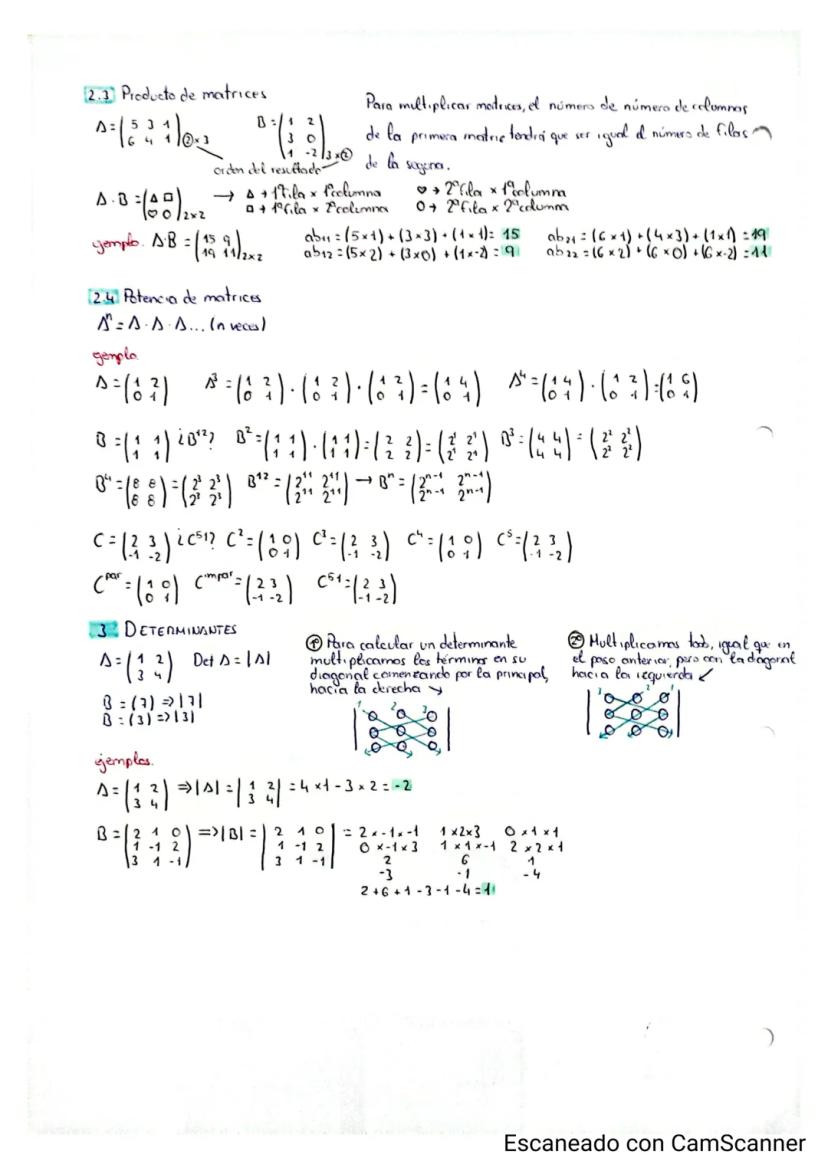 2.3 Producto de matrices
A = (5 3 1 / 6 4 1) 2×3   B = (1 2 / 3 0 / 1 -2) 3×2
orden del resultado
Para multiplicar matrices, el número de número de columnas
de la primera matriz tendrá que ser igual al número de filas
de la segona.
A · B = (△ □ / ♡ ○) 2×2 → △ → 1ª fila × 1ª columna   ♡ → 2ª fila × 1ª columna
□ → 1ª fila × 2ª columna   ○ → 2ª fila × 2ª columna
ejemplo. A·B = (15 9 / 19 11) 2×2   ab11 = (5×1) + (3×3) + (1×1) = 15   ab21 = (6×1) + (4×3) + (1×1) = 19
ab12 = (5×2) + (3×0) + (1×-2) = 9   ab22 = (6×2) + (6×0) + (6×-2) = 11
2.4 Potencia de matrices
Aⁿ = A · A · A... (n veces)
ejemplo.
A = (1 2 / 0 1)   A³ = (1 2 / 0 1) · (1 2 / 0 1) · (1 2 / 0 1) = (1 4 / 0 1)   A⁴ = (1 4 / 0 1) · (1 2 / 0 1) = (1 6 / 0 1)
B = (1 1 / 1 1) ¿B¹²?   B² = (1 1 / 1 1) · (1 1 / 1 1) = (2 2 / 2 2) = (2¹ 2¹ / 2¹ 2¹)   B³ = (4 4 / 4 4) = (2² 2² / 2² 2²)
B⁴ = (8 8 / 8 8) = (2³ 2³ / 2³ 2³)   B¹² = (2¹¹ 2¹¹ / 2¹¹ 2¹¹) → Bⁿ = (2ⁿ⁻¹ 2ⁿ⁻¹ / 2ⁿ⁻¹ 2ⁿ⁻¹)
C = (2 3 / -1 -2) ¿C⁵¹?   C² = (1 0 / 0 1)   C³ = (2 3 / -1 -2)   C⁴ = (1 0 / 0 1)   C⁵ = (2 3 / -1 -2)
C^par = (1 0 / 0 1)   C^impar = (2 3 / -1 -2)   C⁵¹ = (2 3 / -1 -2)
3. DETERMINANTES
A = (1 2 / 3 4)   Det A = |A|
B = (7) => |7|
B = (3) => |3|
1º Para calcular un determinante
multiplicamos los términos en su
diagonal comenzando por la principal,
hacia la derecha ↘
1 2 3
2º Multiplicamos todo, igual que en
el paso anterior, pero con la diagonal
hacia la izquierda ↙
1 2 3
ejemplos.
A = (1 2 / 3 4) => |A| = |1 2 / 3 4| = 4×1 - 3×2 = -2
B = (2 1 0 / 1 -1 2 / 3 1 -1) => |B| = |2 1 0 / 1 -1 2 / 3 1 -1| = 2×-1×-1   1×2×3   0×1×1
0×-1×3   1×1×-1   2×2×1
2   6   1
-3   -1   -4
2+6+1-3-1-4 = 1
Escaneado con CamScanner